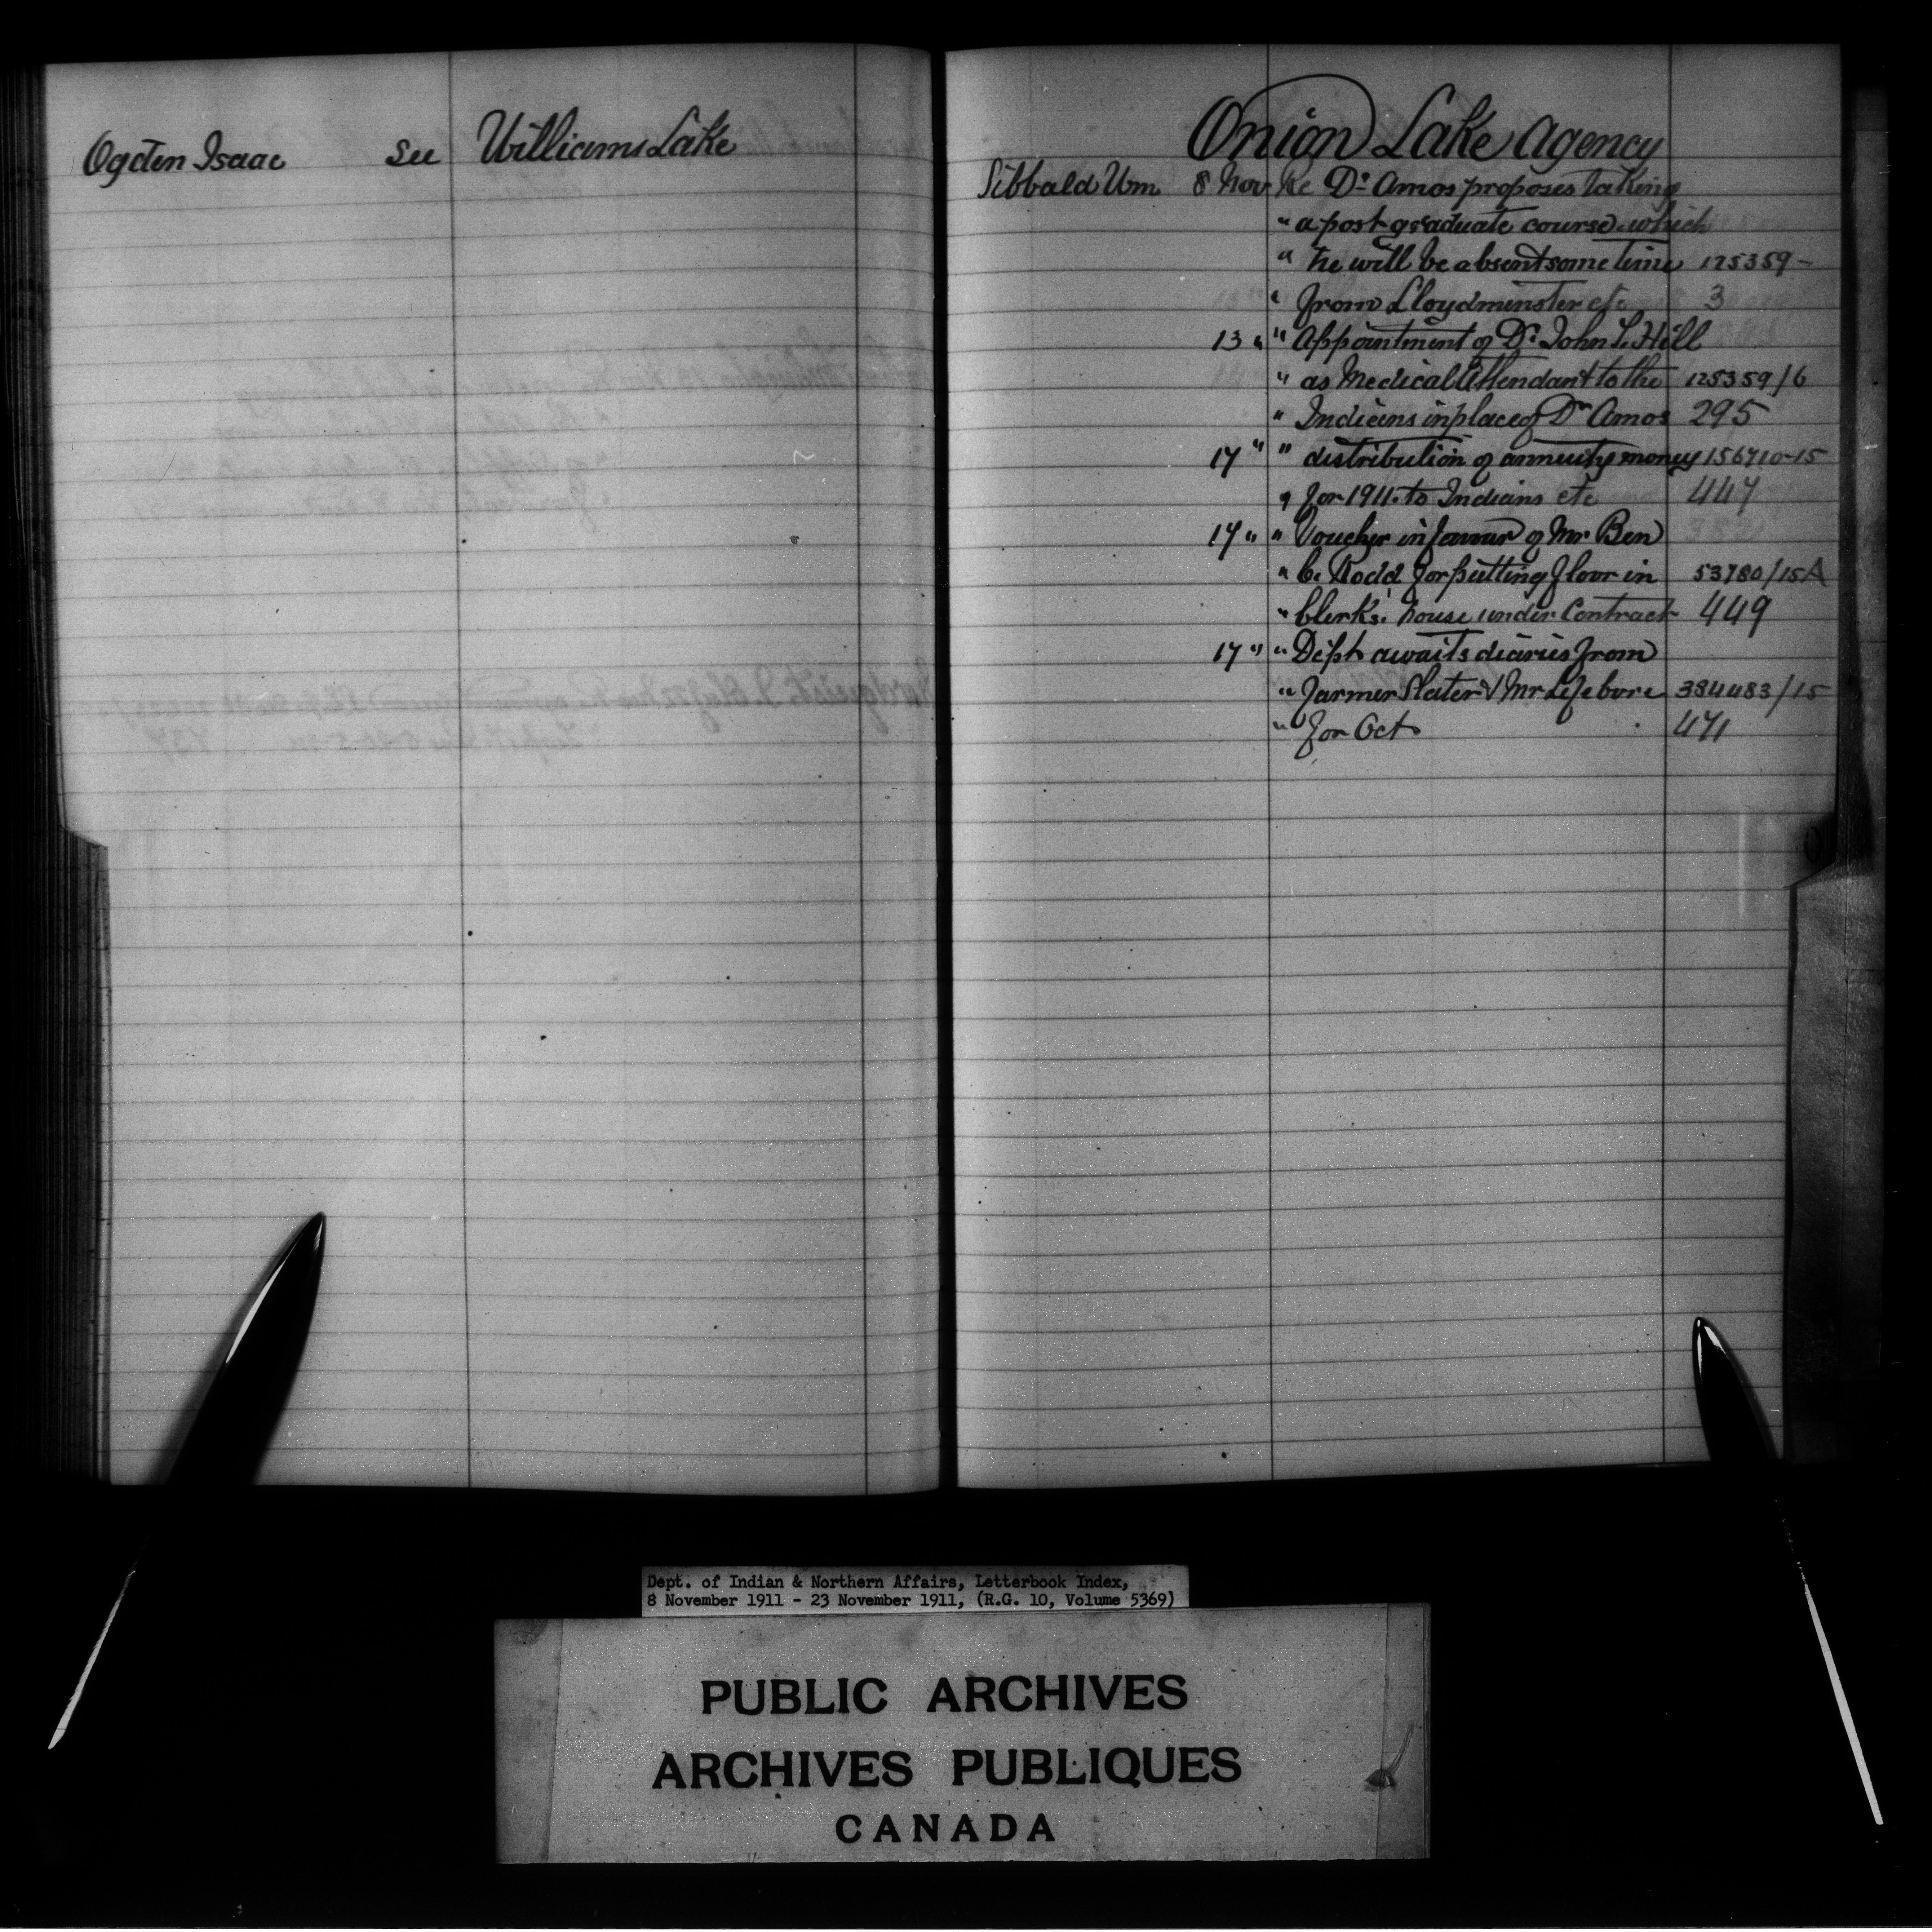 Ogden Isaac See Williams Lake
Onion Lake Agency
Sibbald Wm 8 Nov Re Dr Amos proposes taking
" a post-graduate course which
" he will be absent some time 125359-
" from Lloydminster etc 3
13 " " Appointment of Dr John L. Hill
" as Medical Attendant to the 125359/6
" Indians in place of Dr Amos 295
17 " " distribution of annuity money 156710-15
" for 1911 to Indians etc 447
17 " " Voucher in favour of Mr Ben
" C. Dodd for putting floor in 53780/15A
" Clerk's house under Contract 449
17 " " Dept awaits diaries from
" Farmer Slater & Mr Lefebvre 384483/15
" for Oct 471
Dept. of Indian & Northern Affairs, Letterbook Index,
8 November 1911 - 23 November 1911, (R.G. 10, Volume 5369)
PUBLIC ARCHIVES
ARCHIVES PUBLIQUES
CANADA